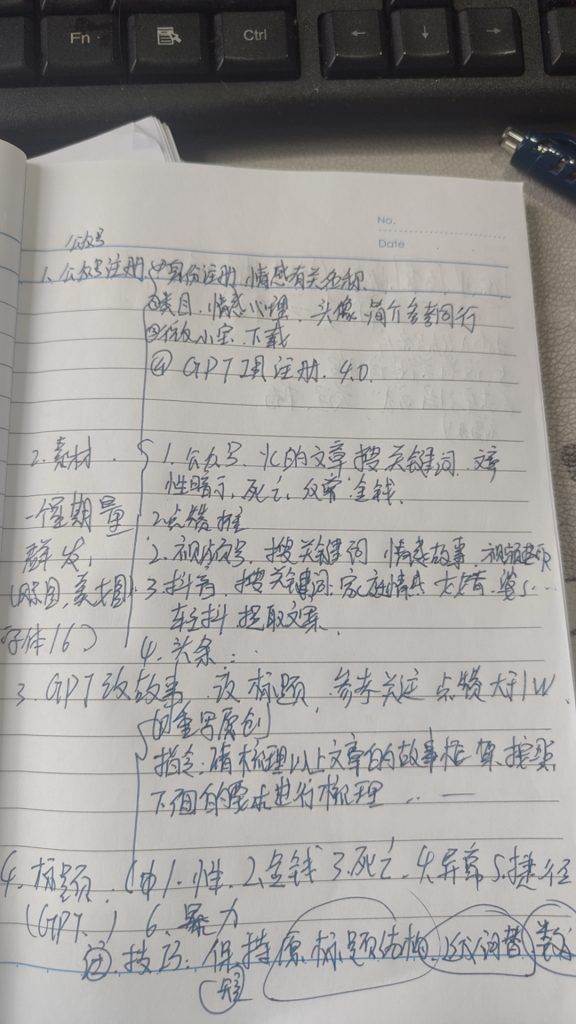 Fn
Ctrl
←
↓
→
No.
Date
公众号
1. 公众号注册 ①身份注册 情感有关名称
②类目, 情感心理, 头像 简介参考同行
下载
④ GPT 注册. 4.0.
2. 素材. 1. 公众号. 的文章 搜关键词
性暗示, 死亡, 金钱.
一个星期量 2. 点赞
群发, 2. 视频号, 搜关键词 情感故事
3. 抖音, 搜关键词. 家庭情感
字体16) 轻抖 提取文案.
4. 头条..
3. GPT改故事 改标题, 参考关注 点赞大于1W
的重写原创
指令: 请梳理以上文章的故事框架 按照
下面的要求进行梳理 .. —
4. 标题. 1. 性. 2. 金钱 3. 死亡. 4. 异常 5. 捷径
(GPT.) 6. 暴力
技巧: 保持原标题结构, 词替